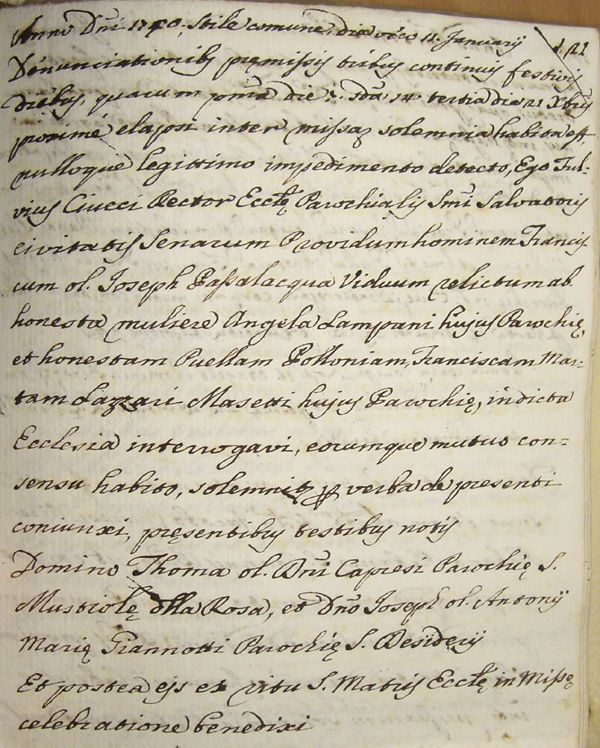 21
Anno Dñi 1740, stile comune, die vero 11. Januarij
Denunciationibȝ pręmissis tribus continuis festivis
diebus, quarum pma die 8. sda 14 tertia die 21 Xbris
proxime elapsi inter missaȝ solemnia habita est,
nulloque legittimo impedimento detecto, Ego Ful-
vius Ciucci Rector Ecclę Parochialis Smi Salvatoris
civitatis Senarum Providum hominem Francis-
cum ol. Joseph Passalacqua Viduum relictum ab
honesta muliere Angela Lampani hujus Parochię,
et honestam Puellam Polloniam, Franciscam Mar-
tam Lazzari Masetti hujus Parochię, in dicta
Ecclesia interrogavi, eorumque mutuo con=
sensu habito, solemnitȝ ꝑ verba de presenti
coniunxi, pręsentibus testibus notis
Domino Thoma ol. Dñi Capresi Parochię S.
Mustiolę dlla Rosa, et Dno Joseph ol. Antonij
Marię Giannotti Parochię S. Desiderij
Et postea ejs ex ritu S. Matris Ecclę in Missę
celebratione benedixi